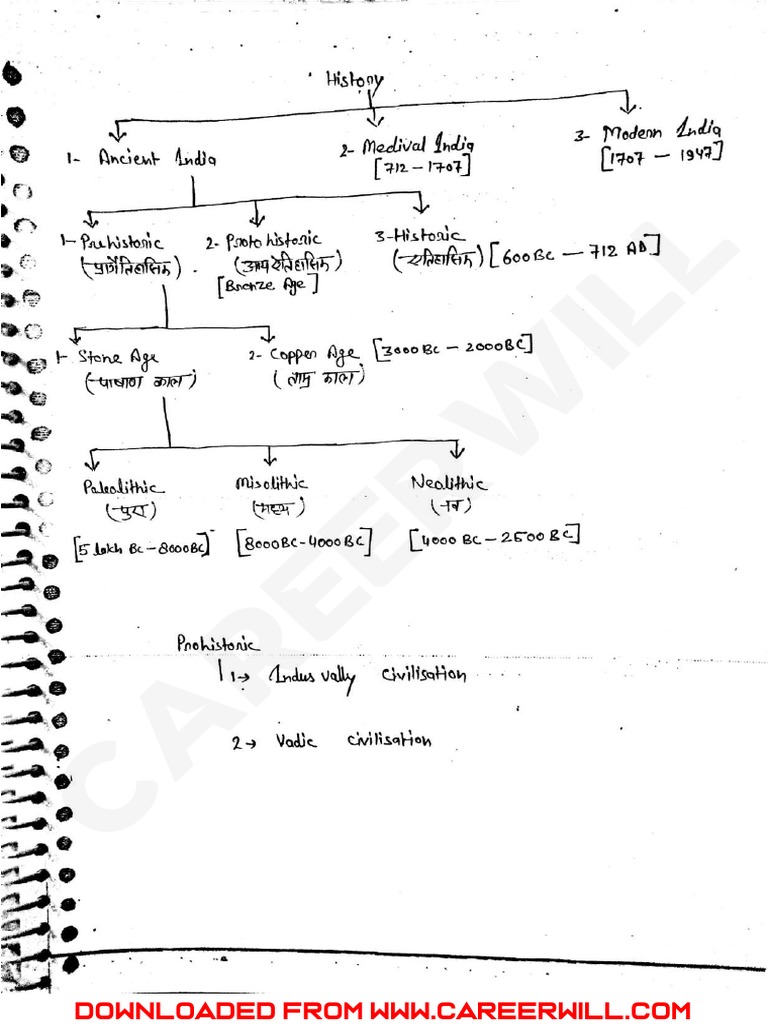 History
1- Ancient India
2- Medival India
[712 - 1707]
3- Modern India
[1707 - 1947]
1- Prehistoric
(प्रागैतिहासिक)
2- Proto historic
(आद्य ऐतिहासिक)
[Bronze Age]
3- Historic
(ऐतिहासिक) [600 BC - 712 AD]
1- Stone Age
(पाषाण काल)
2- Copper Age [3000 BC - 2000 BC]
(ताम्र काल)
Paleolithic
(पुरा)
[5 lakh BC - 8000 BC]
Misolithic
(मध्य)
[8000 BC - 4000 BC]
Neolithic
(नव)
[4000 BC - 2500 BC]
Prohistoric
1→ Indus vally civilisation
2→ Vadic civilisation
CAREERWILL
DOWNLOADED FROM WWW.CAREERWILL.COM